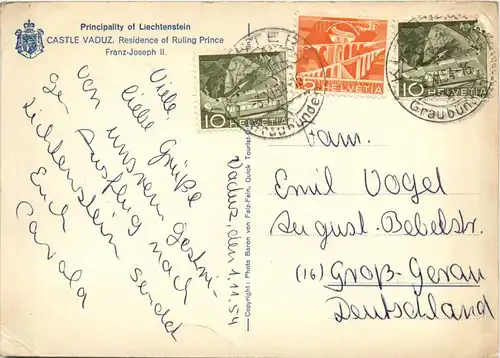 Principality of Liechtenstein
CASTLE VADUZ. Residence of Ruling Prince
Franz-Joseph II.
Viele
liebe Grüße
von unserm gestri-
gen Ausflug nach
Lichtenstein sendet
Euch
Carola
Vaduz, den 1.11.54
Copyright: Photo Baron von Falz-Fein, Quick Tourist
10 HELVETIA
5 HELVETIA
10 HELVETIA
Graubünden
Graubün
Fam.
Emil Vogel
August-Bebelstr.
(16) Groß-Gerau
Deutschland